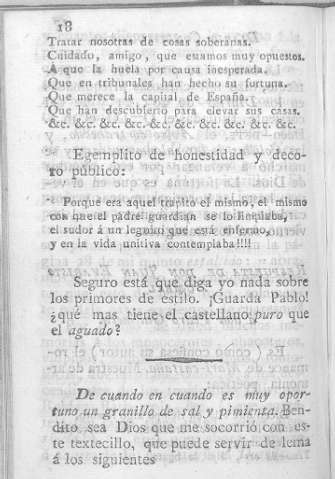 18
Tratar nosotras de cosas soberanas.
Cuidado, amigo, que estamos muy opuestos.
A que la huela por causa inesperada.
Que en tribunales han hecho su fortuna.
Que merece la capital de España.
Que han descubierto para elevar sus casas.
&c. &c. &c. &c. &c. &c. &c. &c. &c.
Egemplito de honestidad y deco-
ro público:
Porque era aquel trapito el mismo, el mismo
con que el padre guardian se lo limpiaba,
el sudor á un leguito que está enfermo,
y en la vida unitiva contemplaba!!!!
Seguro está que diga yo nada sobre
los primores de estilo. ¡Guarda Pablo!
¿qué mas tiene el castellano puro que
el aguado?
De cuando en cuando es muy opor-
tuno un granillo de sal y pimienta. Ben-
dito sea Dios que me socorrió con es-
te textecillo, que puede servir de lema
á los siguientes